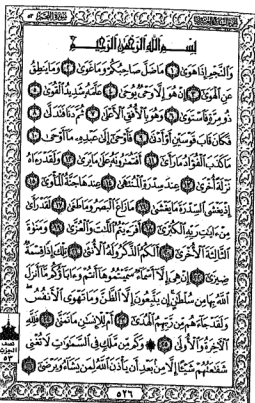 بِسْمِ اللَّهِ الرَّحْمَٰنِ الرَّحِيمِ
وَالنَّجْمِ إِذَا هَوَىٰ ١ مَا ضَلَّ صَاحِبُكُمْ وَمَا غَوَىٰ ٢ وَمَا يَنطِقُ
عَنِ الْهَوَىٰ ٣ إِنْ هُوَ إِلَّا وَحْيٌ يُوحَىٰ ٤ عَلَّمَهُ شَدِيدُ الْقُوَىٰ ٥
ذُو مِرَّةٍ فَاسْتَوَىٰ ٦ وَهُوَ بِالْأُفُقِ الْأَعْلَىٰ ٧ ثُمَّ دَنَا فَتَدَلَّىٰ ٨
فَكَانَ قَابَ قَوْسَيْنِ أَوْ أَدْنَىٰ ٩ فَأَوْحَىٰ إِلَىٰ عَبْدِهِ مَا أَوْحَىٰ ١٠
مَا كَذَبَ الْفُؤَادُ مَا رَأَىٰ ١١ أَفَتُمَارُونَهُ عَلَىٰ مَا يَرَىٰ ١٢ وَلَقَدْ رَآهُ
نَزْلَةً أُخْرَىٰ ١٣ عِندَ سِدْرَةِ الْمُنتَهَىٰ ١٤ عِندَهَا جَنَّةُ الْمَأْوَىٰ ١٥
إِذْ يَغْشَى السِّدْرَةَ مَا يَغْشَىٰ ١٦ مَا زَاغَ الْبَصَرُ وَمَا طَغَىٰ ١٧ لَقَدْ رَأَىٰ
مِنْ آيَاتِ رَبِّهِ الْكُبْرَىٰ ١٨ أَفَرَأَيْتُمُ اللَّاتَ وَالْعُزَّىٰ ١٩ وَمَنَاةَ
الثَّالِثَةَ الْأُخْرَىٰ ٢٠ أَلَكُمُ الذَّكَرُ وَلَهُ الْأُنثَىٰ ٢١ تِلْكَ إِذًا قِسْمَةٌ
ضِيزَىٰ ٢٢ إِنْ هِيَ إِلَّا أَسْمَاءٌ سَمَّيْتُمُوهَا أَنتُمْ وَآبَاؤُكُم مَّا أَنزَلَ
اللَّهُ بِهَا مِن سُلْطَانٍ إِن يَتَّبِعُونَ إِلَّا الظَّنَّ وَمَا تَهْوَى الْأَنفُسُ
وَلَقَدْ جَاءَهُم مِّن رَّبِّهِمُ الْهُدَىٰ ٢٣ أَمْ لِلْإِنسَانِ مَا تَمَنَّىٰ ٢٤ فَلِلَّهِ
الْآخِرَةُ وَالْأُولَىٰ ٢٥ وَكَم مِّن مَّلَكٍ فِي السَّمَاوَاتِ لَا تُغْنِي
شَفَاعَتُهُمْ شَيْئًا إِلَّا مِن بَعْدِ أَن يَأْذَنَ اللَّهُ لِمَن يَشَاءُ وَيَرْضَىٰ ٢٦
نصف
الحزب
٥٣
٥٢٦